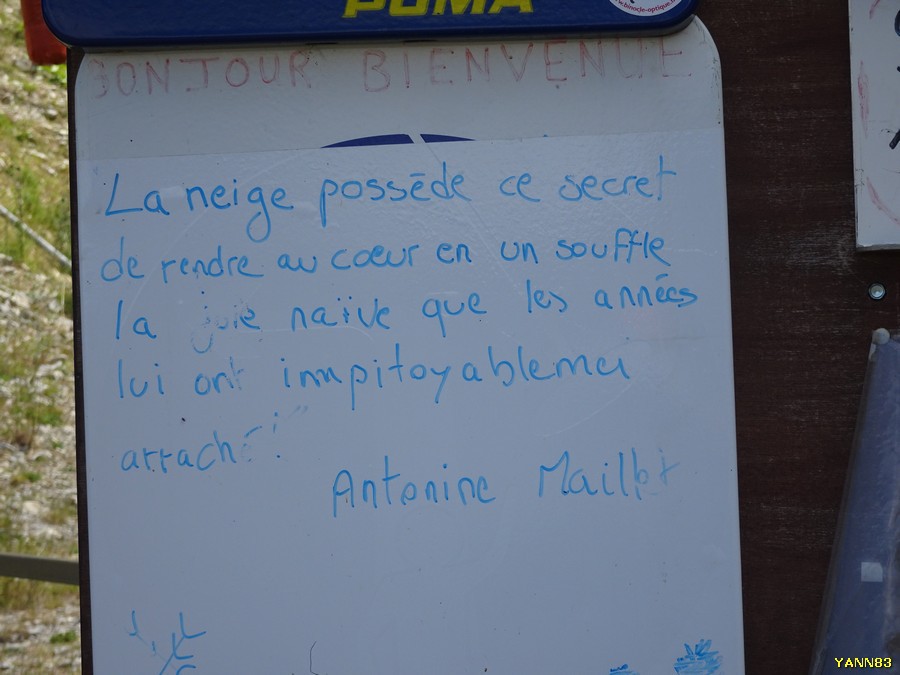 POMA
www.binocle-optique.fr
BONJOUR BIENVENUE
La neige possède ce secret
de rendre au cœur en un souffle
la joie naïve que les années
lui ont impitoyableme
arraché!"
Antonine Maillet
YANN83